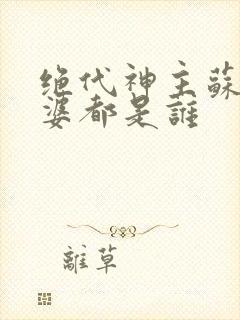 绝代神主蘇
婆都是誰
離草